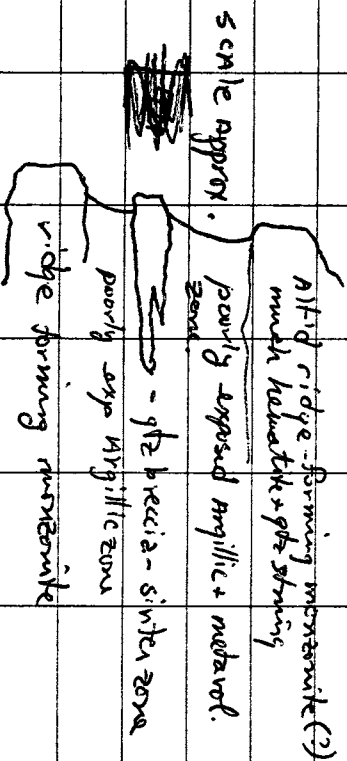 Scale Approx.
Alt'd ridge-forming monzonite (?)
much hematite + qtz staining
poorly exposed Argillic + metavol.
zone.
- qtz breccia - sinter zone
poorly exp Argillic zone
ridge forming monzonite